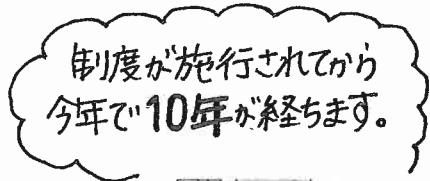 制度が施行されてから
今年で10年が経ちます。